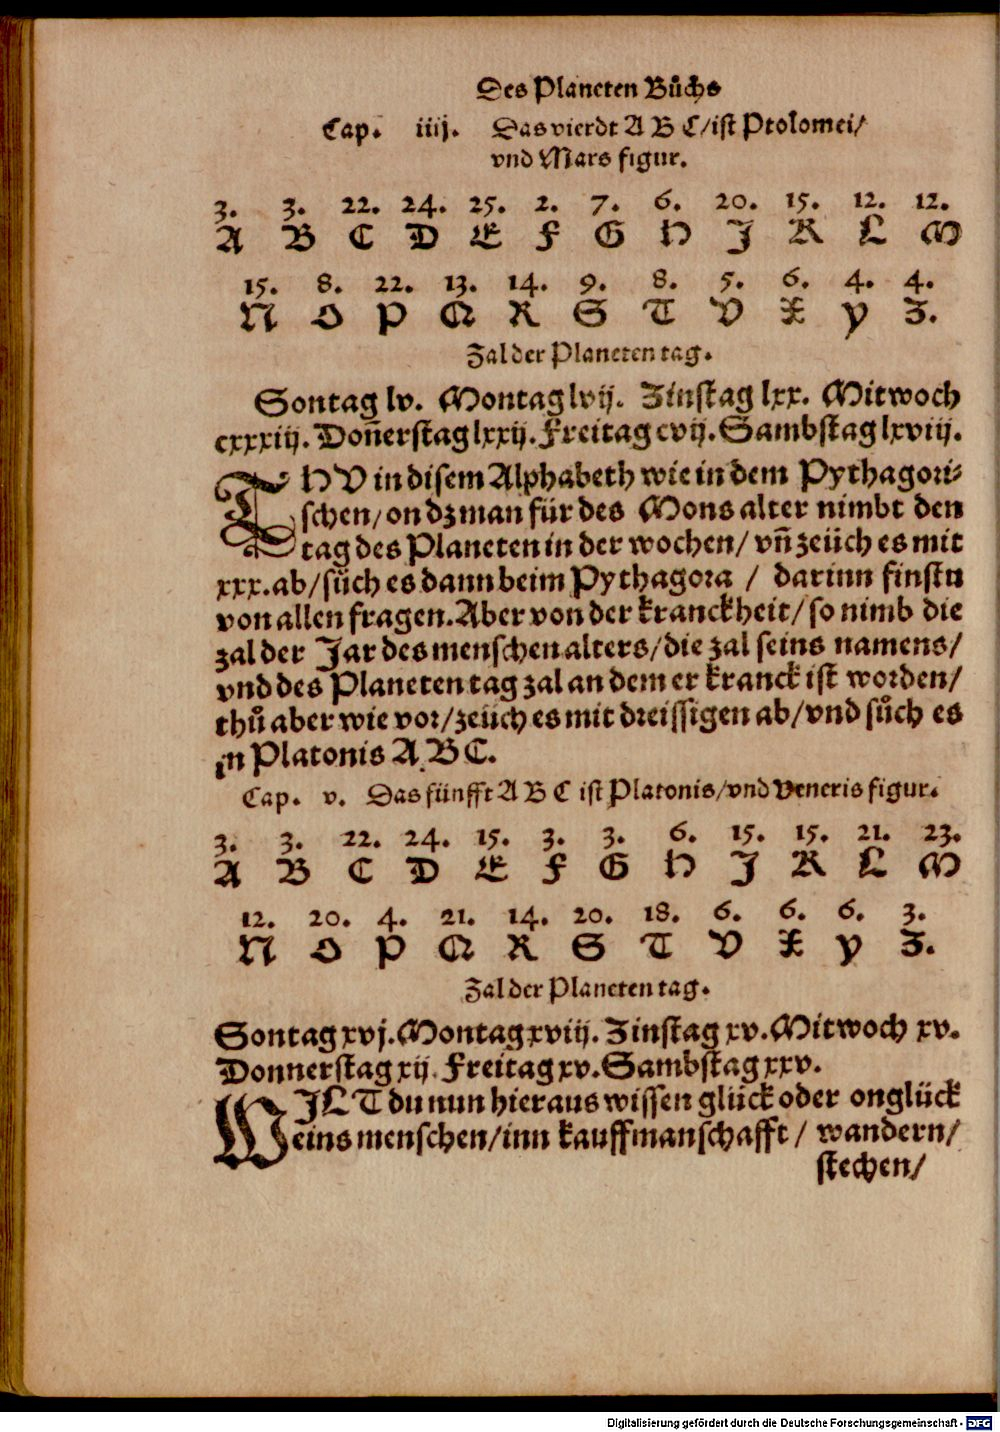 Des Planeten Bůchs
Cap. iiij. Das vierdt A B C/ist Ptolomei/
vnd Mars figur.
3. 3. 22. 24. 25. 2. 7. 6. 20. 15. 12. 12.
A B C D E F G H J K L M
15. 8. 22. 13. 14. 9. 8. 5. 6. 4. 4.
N O P Q R S T V X Y Z.
Zal der Planeten tag.
Sontag lv. Montag lvij. Zinstag lxx. Mitwoch
cxxxiij. Doñerstag lxxij. Freitag cvij. Sambstag lxviij.
THV in disem Alphabeth wie in dem Pythagori-
schen/ on dz man für des Mons alter nimbt den
tag des Planeten in der wochen/ vñ zeüch es mit
xxx. ab/ sůch es dann beim Pythagora / darinn finstu
von allen fragen. Aber von der kranckheit/ so nimb die
zal der Jar des menschen alters/ die zal seins namens/
vnd des Planeten tag zal an dem er kranck ist worden/
thů aber wie vor/ zeüch es mit dreissigen ab/ vnd sůch es
in Platonis A B C.
Cap. v. Das fünfft A B C ist Platonis/ vnd Veneris figur.
3. 3. 22. 24. 15. 3. 3. 6. 15. 15. 21. 23.
A B C D E F G H J K L M
12. 20. 4. 21. 14. 20. 18. 6. 6. 6. 3.
N O P Q R S T V X Y Z.
Zal der Planeten tag.
Sontag xvj. Montag xviij. Zinstag xv. Mitwoch xv.
Donnerstag xij. Freitag xv. Sambstag xxv.
WJLT du nun hieraus wissen glück oder onglück
eins menschen/ inn kauffmanschafft / wandern/
stechen/
Digitalisierung gefördert durch die Deutsche Forschungsgemeinschaft - DFG